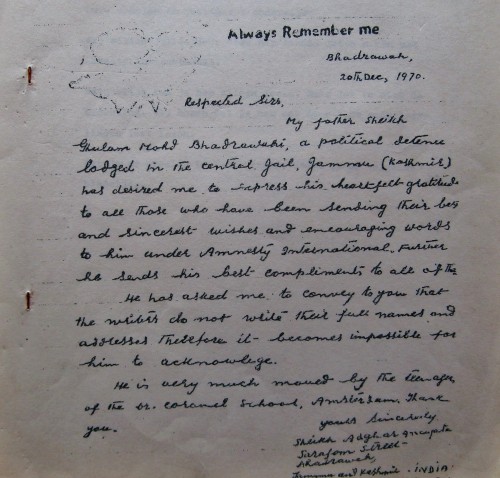 Always Remember me
Bhadrawah,
20th Dec, 1970.
Respected Sirs,
My father Sheikh
Ghulam Mohd Bhadrawahi, a political detenue
lodged in the central Jail, Jammu (Kashmir)
has desired me to express his heartfelt gratitude
to all those who have been sending their best
and sincerest wishes and encouraging words
to him under Amnesty International. Further
he sends his best compliments to all of them
He has asked me to convey to you that
the writers do not write their full names and
addresses therefore it becomes impossible for
him to acknowlege.
He is very much moved by the teenagers
of the Dr. Coronel School, Amsterdam. Thank
you.
yours Sincerely,
Sheikh Asghar
Street
Bhadrawah,
Jammu and Kashmir. INDIA